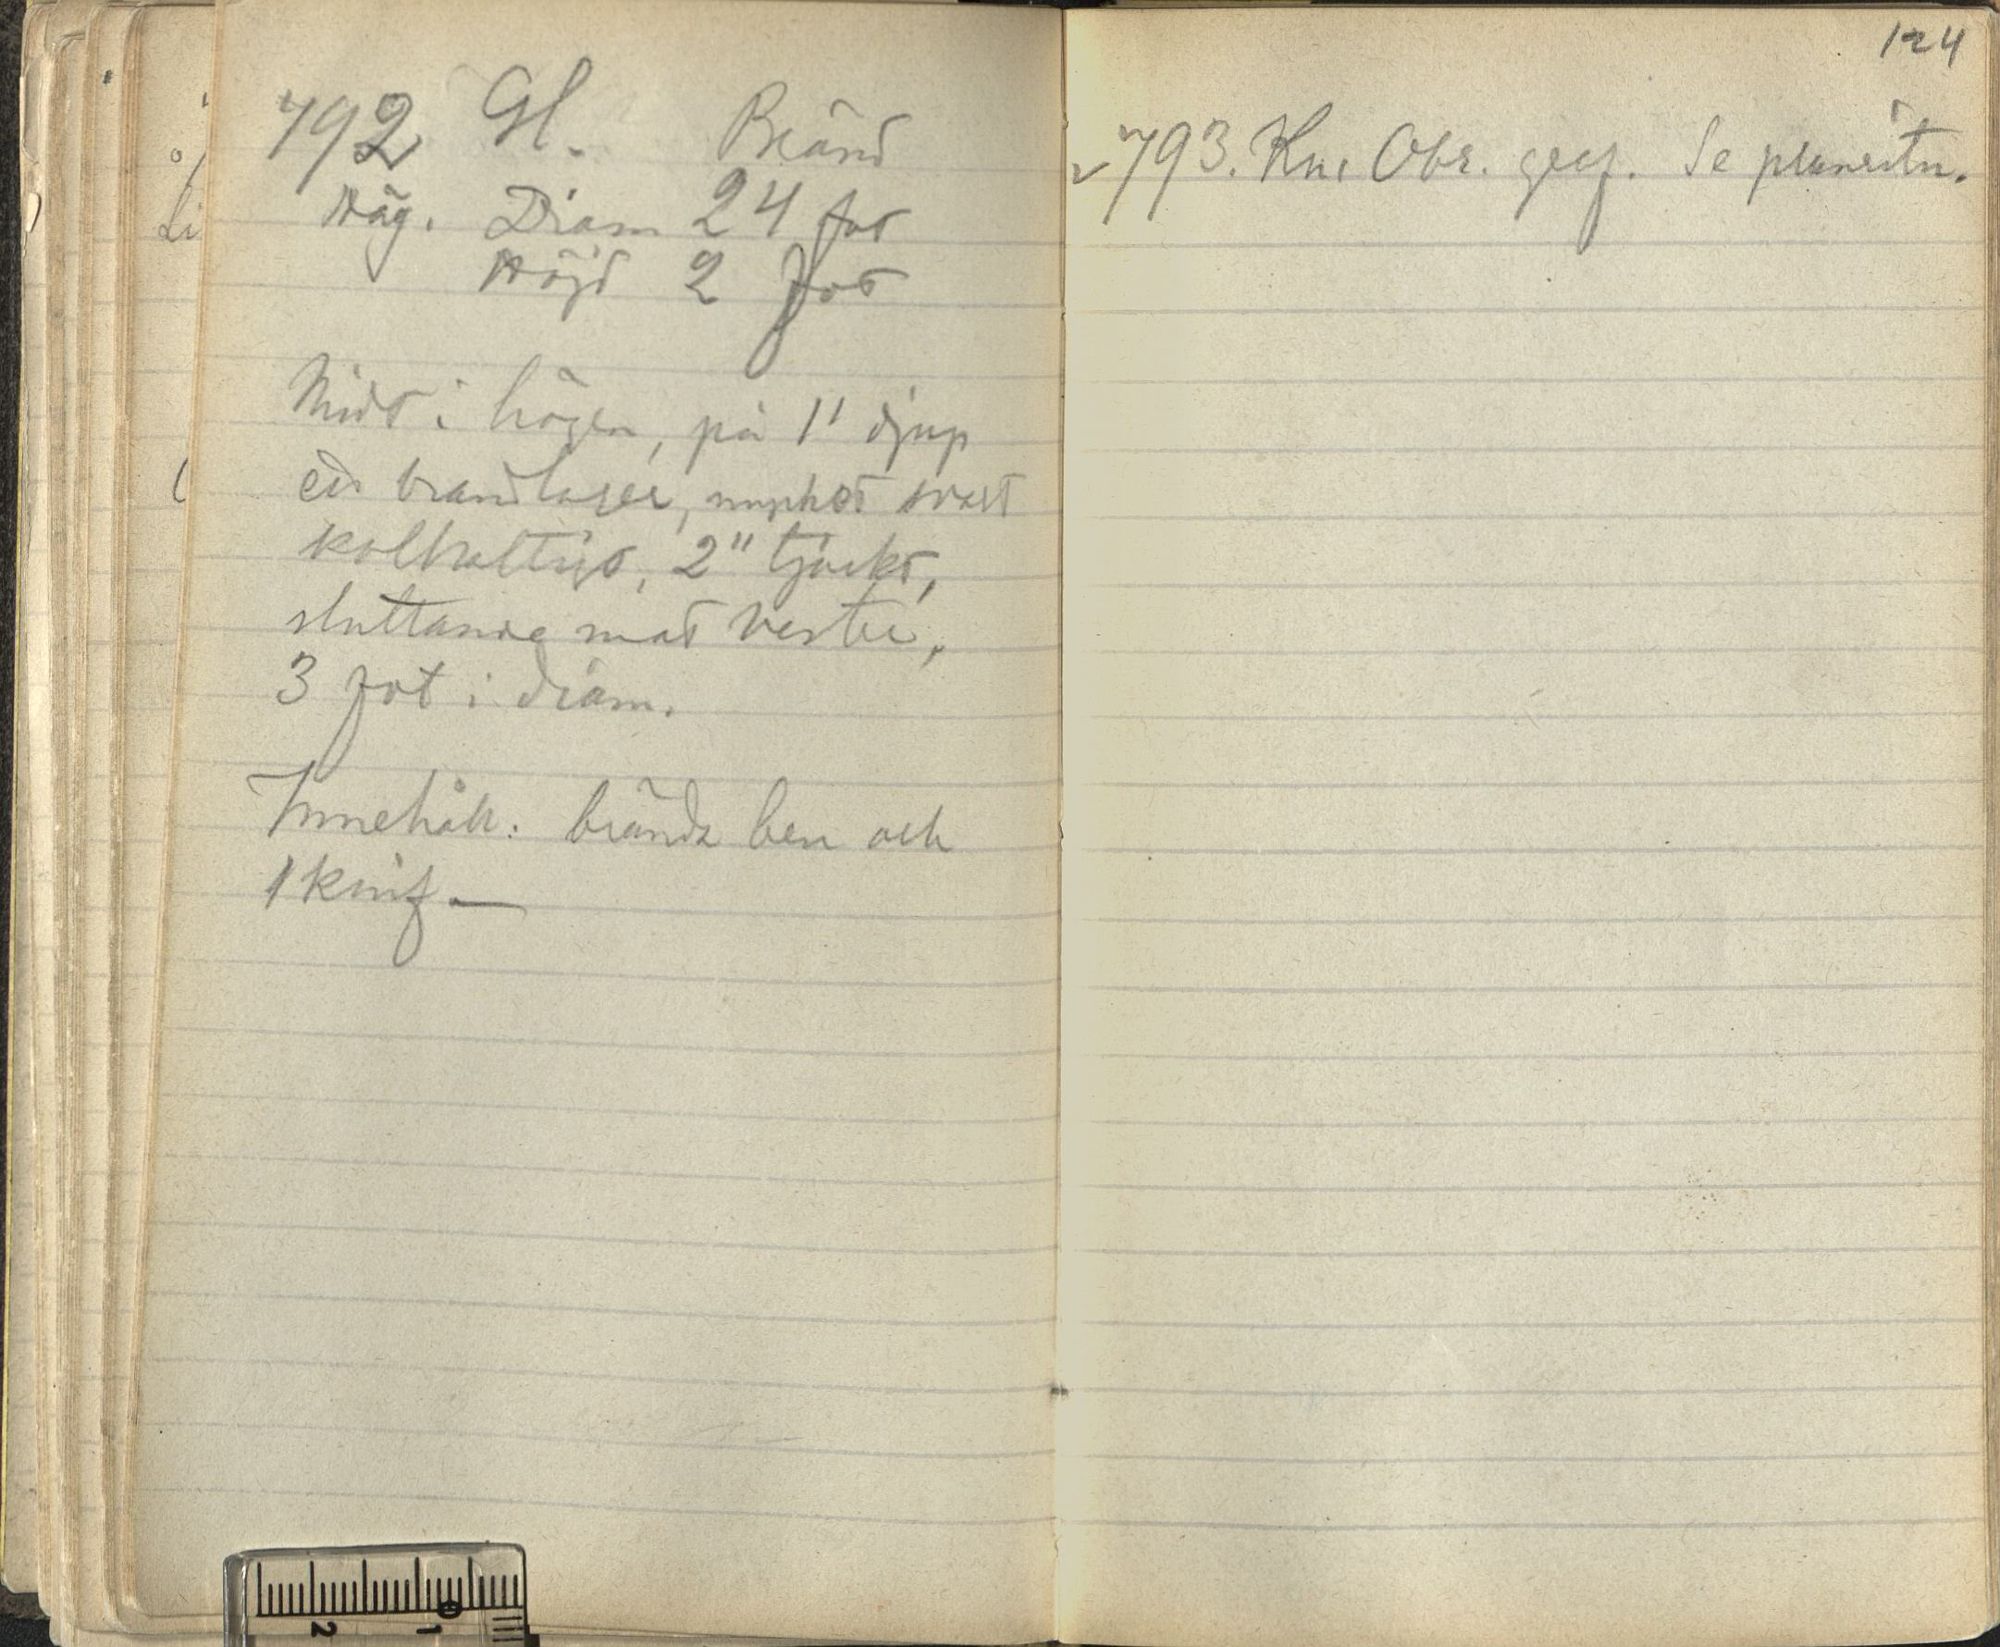 792 Gl. Bränd
Hög. Diam 24 fot
Höjd 2 fot
Midt i högen, på 1' djup
ett brandlager, mycket svart
kolhaltigt, 2" tjockt,
sluttande mot vester,
3 fot i diam.
Innehåll: brända ben och
1 knif —
Li
124
793. Kni Obr. graf. Se planritn.
2
1
0